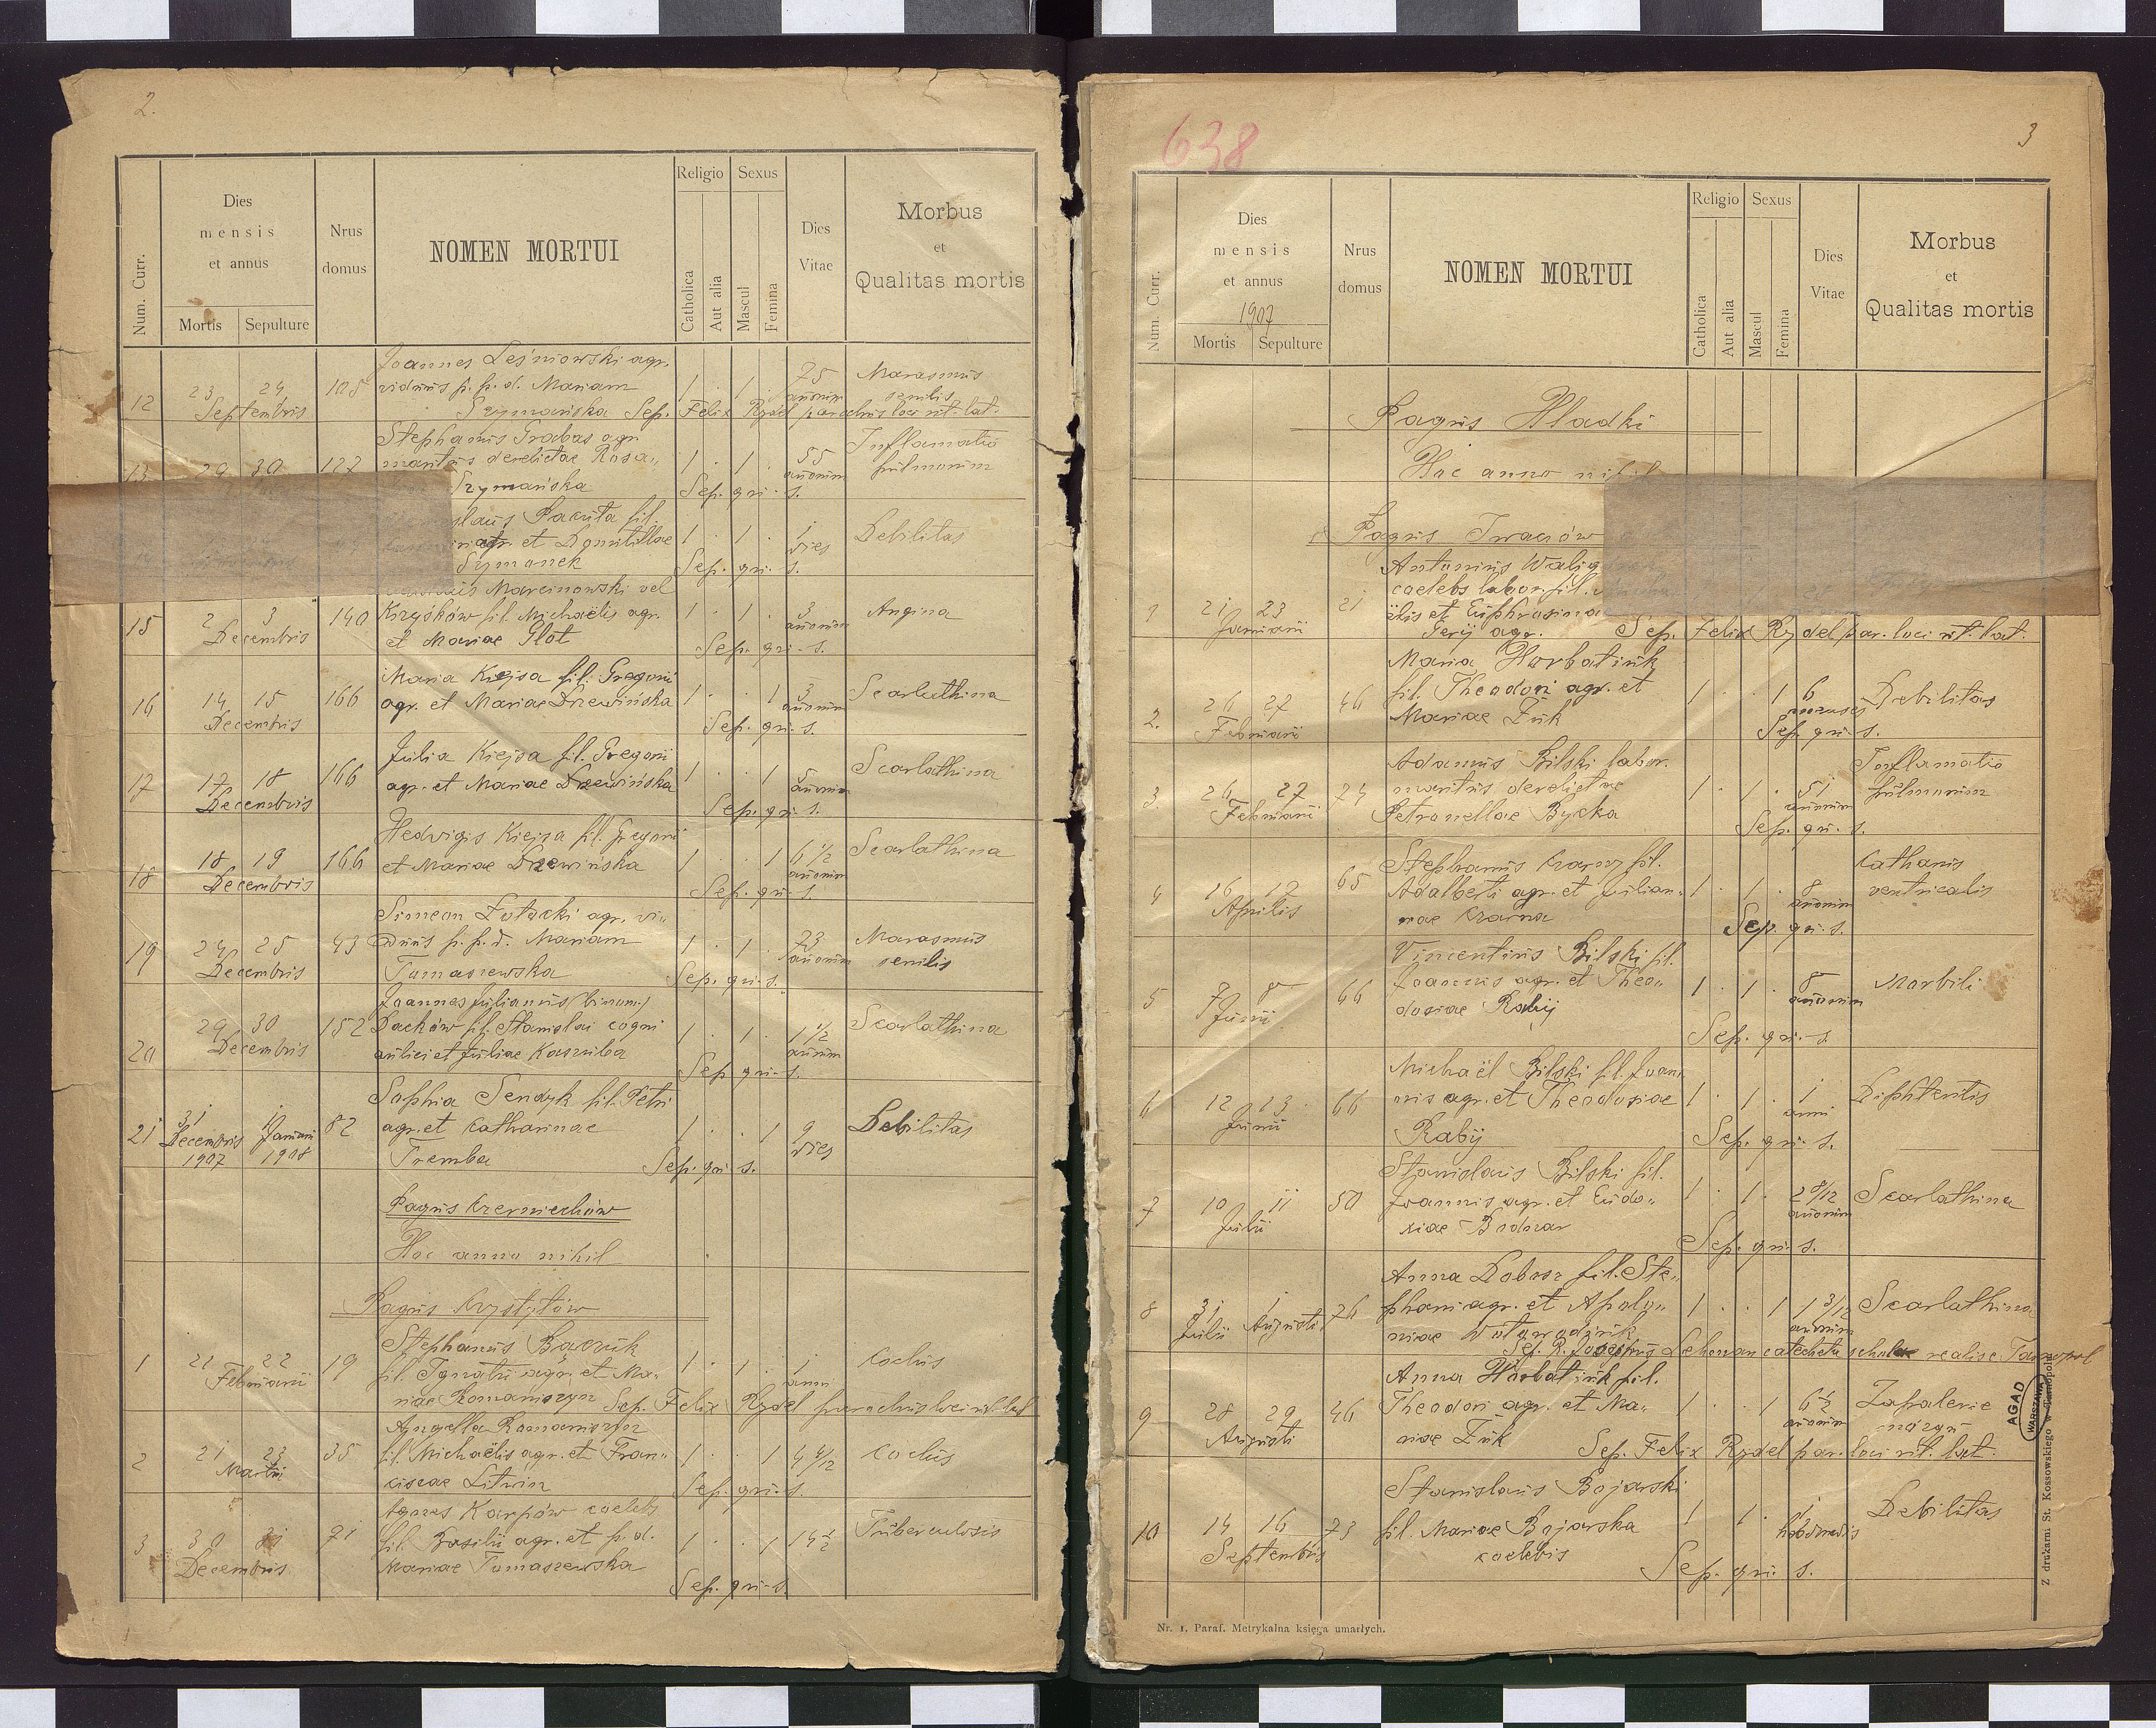 2.
Num. Curr.
Dies
mensis
et annus
Mortis
Sepulture
Nrus
domus
NOMEN MORTUI
Religio
Catholica
Aut alia
Sexus
Mascul
Femina
Dies
Vitae
Morbus
et
Qualitas mortis
Joannes Leśniowski agr.
12 23 24 105 viduus p. p. d. Mariam 1 . 1 . 75 Marasmus
Septembris Szymańska annorum senilis
Sep. Felix Rydel parochus loci rit. lat.
Stephanus Grabas agr.
13 29 30 127 maritus derelictae Rosa„ 1 . 1 . 55 Inflamatio
Szymańska annorum pulmonum
Sep. qui. s.
slaus Pacuta fil.
agr. et Domitillae 1 . 1 . 1 Debilitas
Szymanek dies
Sep. qui. s.
Marcinowski vel
15 2 3 140 Krzyśków fil. Michaëlis agr. 1 . 1 . 3 Angina
Decembris et Mariae Glot annorum
Sep. qui. s.
Maria Kiejsa fil. Gregorii
16 14 15 166 agr. et Mariae Drzewińska 1 . . 1 3 Scarlathina
Decembris annorum
Sep. qui. s.
Julia Kiejsa fil. Gregorii
17 17 18 166 agr. et Mariae Drzewińska 1 . . 1 5 Scarlathina
Decembris annorum
Sep. qui. s.
Hedvigis Kiejsa fil. Gregorii
18 18 19 166 et Mariae Drzewińska 1 . . 1 6 1/2 Scarlathina
Decembris annorum
Sep. qui. s.
Simeon Zotocki agr. vi„
19 24 25 43 duus p. p. d. Mariam 1 . 1 . 73 Marasmus
Decembris Tomaszewska annorum senilis
Sep. qui. s.
Joannes Julianus (binom.)
20 29 30 152 Daćków fil. Stanislai cogni 1 . 1 . 1 1/2 Scarlathina
Decembris aulici et Juliae Kaszuba annorum
Sep. qui. s.
Sophia Sendyk fil. Petri
21 31 1 82 agr. et Catharinae 1 . . 1 9 Debilitas
Decembris Januarii Tremba dies
1907 1908
Sep. qui. s.
Pagus Krzemiechów
Hoc anno nihil
Pagus Krystytów
Stephanus Bacruk
1 21 22 19 fil. Ignatii agr. et Ma„ 1 . 1 . 1 Coclus
Februarii riae Romaniszyn anni
Sep. Felix Rydel parochus loci rit. lat
Angella Romaniszyn
2 21 23 35 fil. Michaëlis agr. et Fran„ 1 . . 1 4 4/12 Coclus
Martii ciscae Litwin
Sep. qui. s.
Agnes Karpów coelebs
3 30 31 71 fil. Basilii agr. et p. d. 1 . . 1 14 1/2 Tuberculosis
Decembris Mariae Tomaszewska
Sep. qui. s.
638
3
Num. Curr.
Dies
mensis
et annus
1907
Mortis
Sepulture
Nrus
domus
NOMEN MORTUI
Religio
Catholica
Aut alia
Sexus
Mascul
Femina
Dies
Vitae
Morbus
et
Qualitas mortis
Pagus Hladki
Hoc anno nihil
Pagus Iwaczów
Antonius Walig
coelebs labor. fil.
1 21 23 21 ëlis et Euphrosina
Januarii Gerij agr.
Sep. Felix Rydel par. loci rit. lat.
Maria Horbatiuk
2. 26 27 46 fil. Theodori agr. et 1 . . 1 6 Debilitas
Februarii Mariae Żuk menses
Sep. qui. s.
Adamus Bilski labor.
3. 26 27 74 maritus derelictae 1 . 1 . 51 Inflamatio
Februarii Petronellae Bycka annorum pulmonum
Sep. qui. s.
Stephanus Czarny fil.
4 16 17 65 Adalberti agr. et Julian„ 1 . 1 . 8 Catharis
Aprilis nae Czarna annorum ventricalis
Sep. qui. s.
Vincentius Bilski fil.
5 7 8 66 Joannis agr. et Theo„ 1 . 1 . 8 Morbili
Junii dosiae Rabij annorum
Sep. qui. s.
Michaël Bilski fil. Joan„
6 12 13 66 nis agr. et Theodosiae 1 . 1 . 1 Diphteritis
Junii Rabij anni
Sep. qui. s.
Stanislaus Bilski fil.
7 10 11 50 Joannis agr. et Eudo„ 1 . 1 . 2 8/12 Scarlathina
Julii xiae Bodnar annorum
Sep. qui. s.
Anna Dobosz fil. Ste„
8 31 1 76 phani agr. et Apolo„ 1 . . 1 1 3/12 Scarlathina
Julii Augusti niae Wotowodziuk annorum
Sep. R. Josephus Lehman catecheta scholae realise Tarnopol
Anna Horbatiuk fil.
9 28 29 46 Theodori agr. et Ma„ 1 . . 1 6 1/2 Zapalenie
Augusti riae Żuk annorum mózgu
Sep. Felix Rydel par. loci rit. lat.
Stanislaus Bojarski
10 14 16 73 fil. Mariae Bojarska 1 . 1 . 1 Debilitas
Septembris coelebis hebdomadis
Sep. qui. s.
Nr. 1. Paraf. Metrykalna księga umarłych.
Z drukarni St. Kossowskiego w Tarnopolu.
AGAD
WARSZAWA